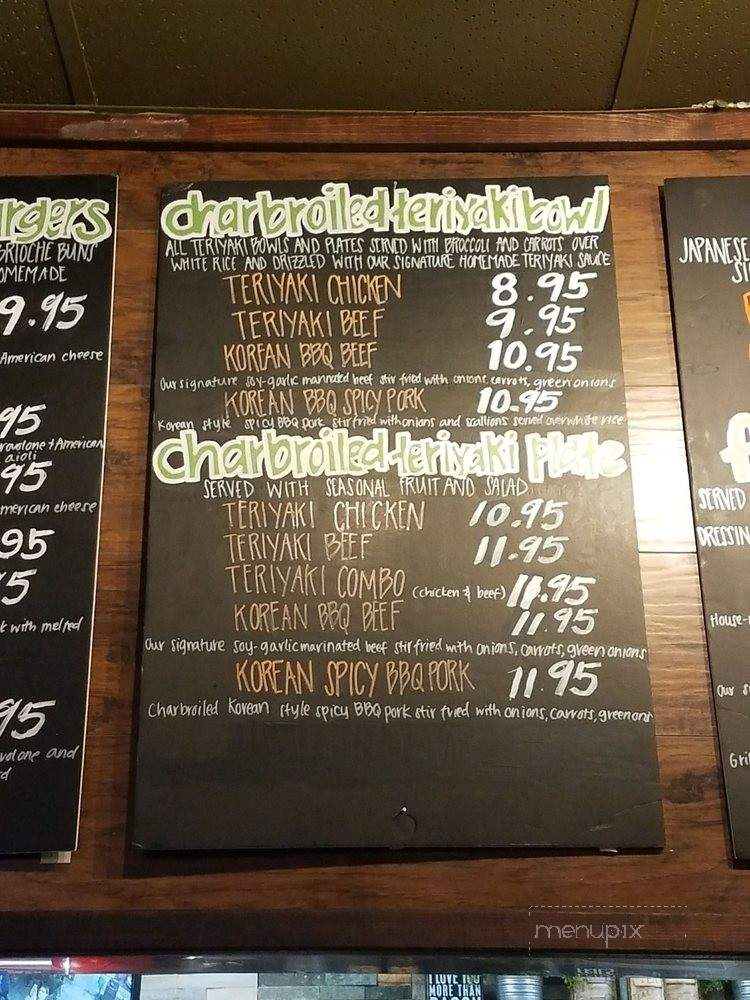 rgers
BRIOCHE BUNS
OMEMADE
9.95
American cheese
95
rovolone & American
aioli
95
merican cheese
95
5
k with melted
95
volone and
charbroiled teriyaki bowl
ALL TERIYAKI BOWLS AND PLATES SERVED WITH BROCCOLI AND CARROTS OVER
WHITE RICE AND DRIZZLED WITH OUR SIGNATURE HOMEMADE TERIYAKI SAUCE
TERIYAKI CHICKEN 8.95
TERIYAKI BEEF 9.95
KOREAN BBQ BEEF 10.95
Our signature soy-garlic marinated beef stir fried with onions, carrots, green onions
KOREAN BBQ SPICY PORK 10.95
Korean style spicy BBQ pork stir fried with onions and scallions served over white rice
charbroiled teriyaki plate
SERVED WITH SEASONAL FRUIT AND SALAD
TERIYAKI CHICKEN 10.95
TERIYAKI BEEF 11.95
TERIYAKI COMBO (chicken & beef) 11.95
KOREAN BBQ BEEF 11.95
Our signature soy-garlic marinated beef stir fried with onions, carrots, green onions
KOREAN SPICY BBQ PORK 11.95
Charbroiled Korean style spicy BBQ pork stir fried with onions, carrots, green oni
JAPANESE
SERVED
DRESSIN
House-
Our s
Gri
menupix
I LOVE YOU
MORE THAN